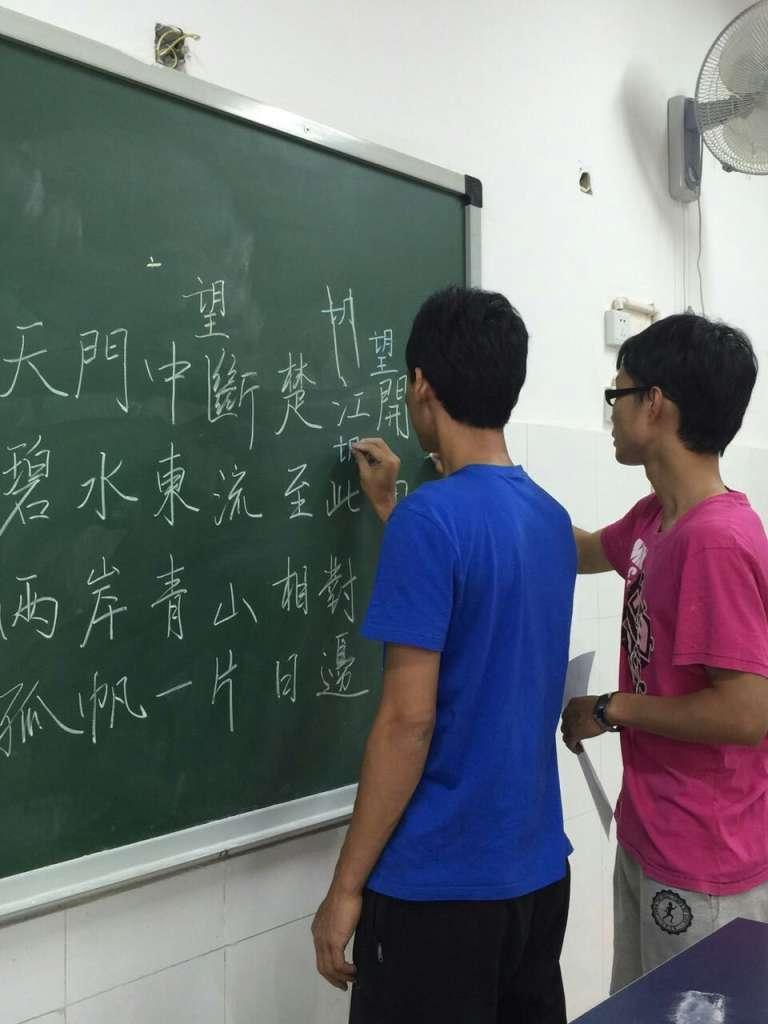 望
切
望
天門中斷楚江開
切
碧水東流至此
兩岸青山相對
孤帆一片日邊